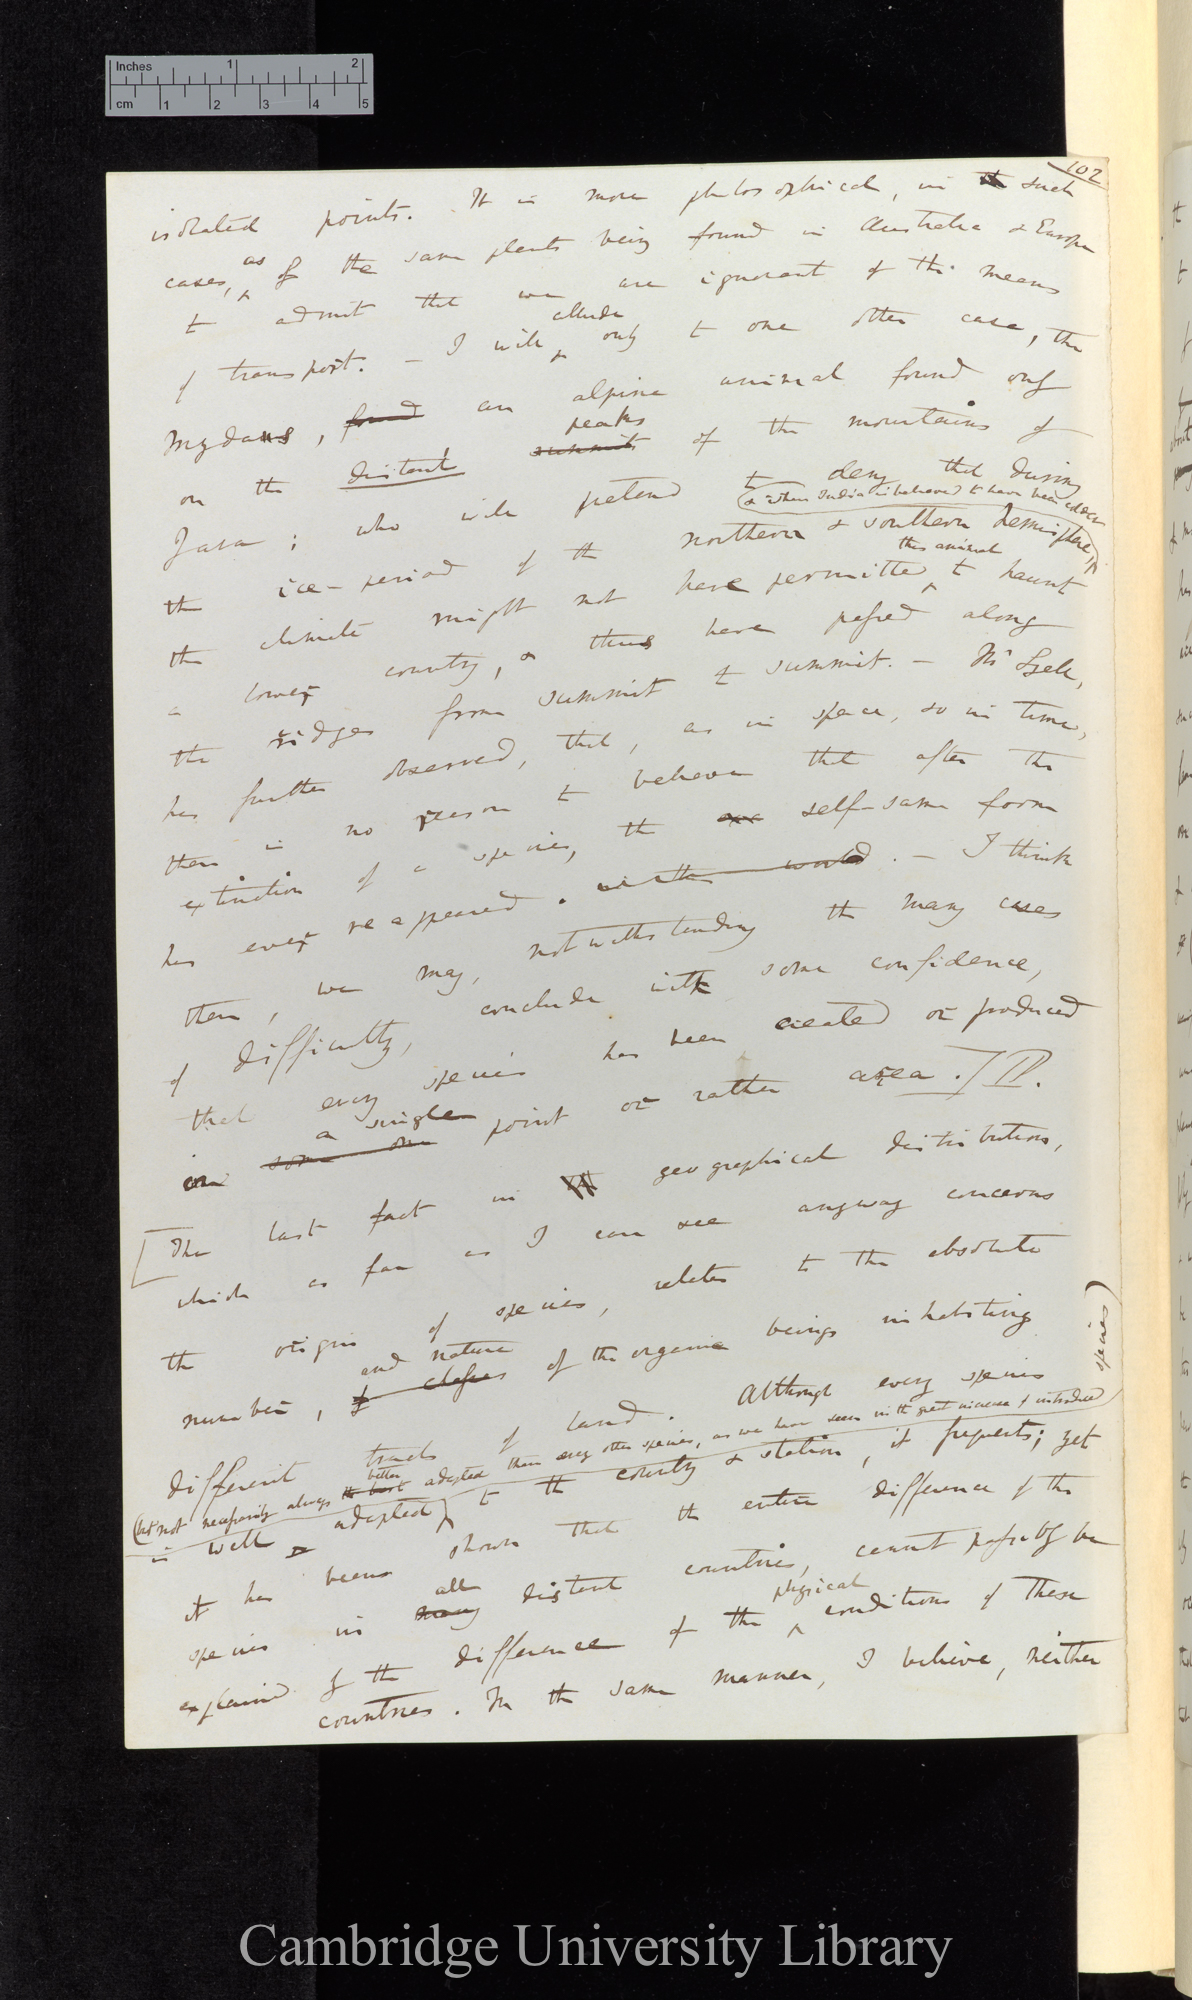 Inches 1 2
cm 1 2 3 4 5
102
isolated points. It is more philosophical, in such
cases, as of the same plants being found in Australia & Europe
to admit that we are ignorant of the means
of transport. — I will allude only to one other case, the
Mydaus, found an alpine animal found only
on the distant summits peaks of the mountains of
Java; who will pretend to deny that during
the ice-period of the northern & southern hemisphere,
& when India is believed to have been colder
the climate might not have permitted this animal to haunt
a lower country, & thus have passed along
the ridges from summit to summit. — Mr Lyell,
has further observed, that, as in space, so in time,
there is no reason to believe that after the
extinction of a species, the self-same form
has ever reappeared. in the world. — I think
then, we may, notwithstanding the many cases
of difficulty, conclude with some confidence,
that every species has been created or produced
on some one a single point or rather area.
The last fact in geographical distribution,
which as far as I can see anyway concerns
the origin of species, relates to the absolute
number, & classes and nature of the organic beings inhabiting
different tracts of land. Although every species
(but not necessarily always the best better adapted than every other species, as we have seen in the great increase of introduced species)
is well adapted to the country & station, it frequents; yet
it has been shown that the entire difference of the
species in many all distant countries, cannot possibly be
explained by the difference of the physical conditions of these
countries. In the same manner, I believe, neither
Cambridge University Library